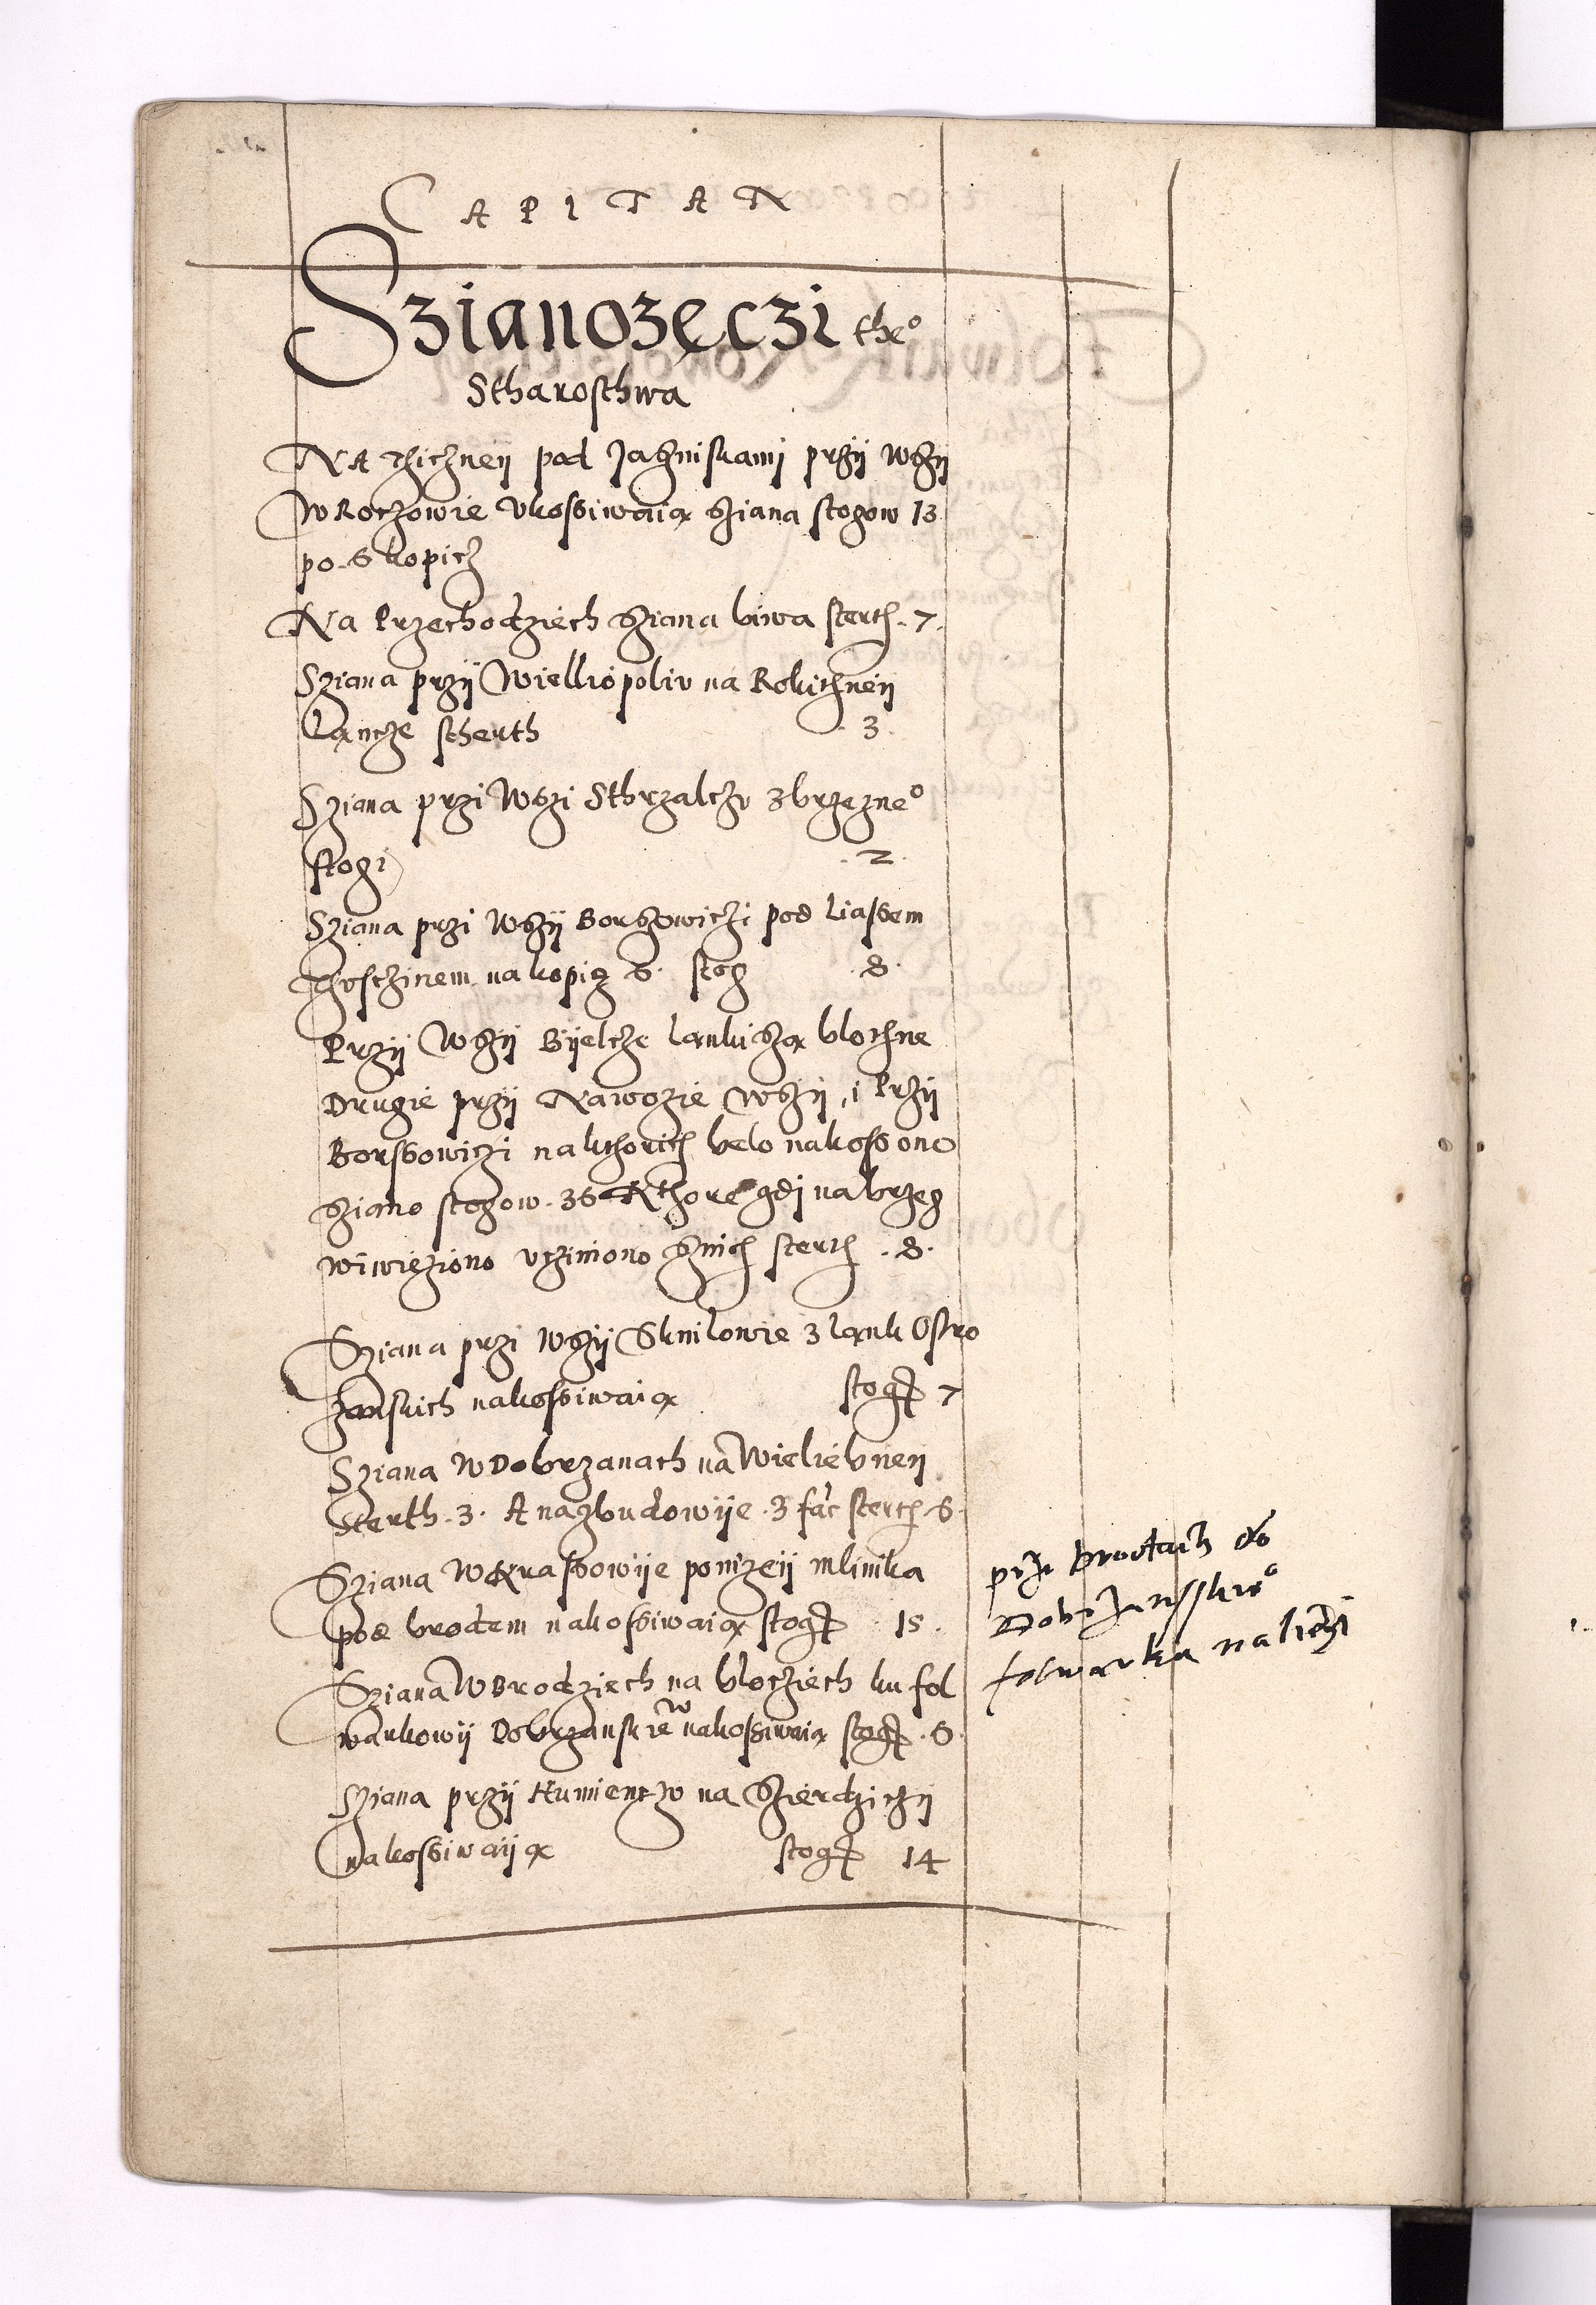 CAPITAN
Szianozęczi the°
Stharosthwa
NA Rzichneÿ pod Jazniskami przÿ wszÿ
W Roczowie Ukossiwaią Sziana stogow 13
po 6 kopicz
Na Przechodziech Sziana biwa sterth 7
Sziana przÿ Wielkiopoliu na Rokithneÿ
Lancze stherth 3
Sziana przi Wszi Sthrzalcze zbrzezne°
stogi 2
Sziana przi Wszÿ Borszowiczi pod Liassem
na kopicz 6. stog 8
Przÿ Wszÿ Bÿelcze lankiszą blothne
Drugie przÿ Nawozie Wszÿ, i Przÿ
Borssowiczi na kthorich belo nakossono
Sziano stogow 36 Kthore gdi na brzeg
wiwieziono ucziniono Sznich sterth 8
Sziana przi Wszÿ Sknilowie z lank Ostro
zanskich nakossiwaią stog 7
Sziana W Dobrzanach na Wieliebneÿ
sterth 3. A na zbudowÿe 3 fac sterth 6
Sziana W Krassowÿe ponizeÿ mlinika
pod brodem nakossiwaią stog 15
Sziana W Brodziech na blociech ku fol
warkowÿ Dobrzanskiew nakossiwaią stog 6
Sziana przÿ Humiencw na Szierdziczÿ
nakossiwaÿą stog 14
przi brodach do
Dobrzanskie°
folwarka naliezi